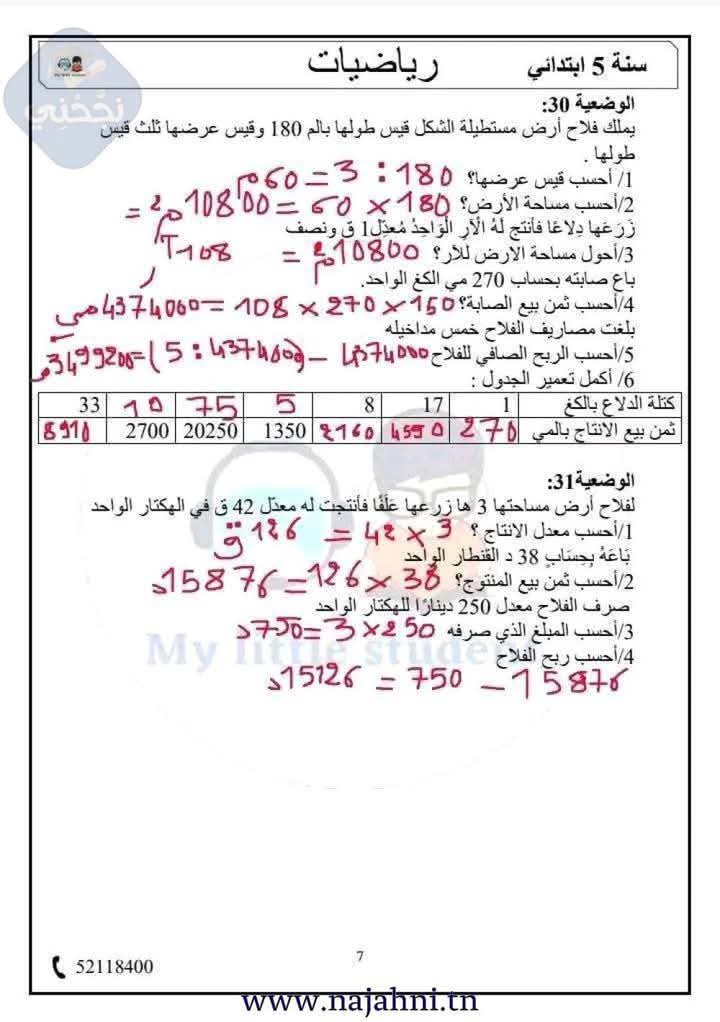 نجّحني
سنة 5 ابتدائي
رياضيات
الوضعية 30:
يملك فلاح أرض مستطيلة الشكل قيس طولها بالم 180 وقيس عرضها ثلث قيس
طولها .
1/ أحسب قيس عرضها؟ 180 : 3 = 60م
2/أحسب مساحة الأرض؟ 180 × 60 = 10800م² =
زَرَعَها دِلاعًا فأنتج لَهُ الْآرِ الْوَاحِدُ مُعدّل1 ق ونصف
3/أحول مساحة الارض للآر؟ 10800م² = 108 آر
باع صابته بحساب 270 مي الكغ الواحد.
4/أحسب ثمن بيع الصابة؟ 150 × 270 × 108 = 4374000مي
بلغت مصاريف الفلاح خمس مداخيله
5/أحسب الربح الصافي للفلاح 4374000 – (4374000 : 5) =3499200مي
6/ أكمل تعمير الجدول :
كتلة الدلاع بالكغ 1 17 8 5 75 10 33
ثمن بيع الانتاج بالمي 270 4590 2160 1350 20250 2700 8910
الوضعية31:
لفلاح أرض مساحتها 3 ها زرعها عَلَفًا فأنتجت له معدّل 42 ق في الهكتار الواحد
1/أحسب معدل الانتاج ؟ 3 × 42 = 126 ق
بَاعَهُ بِحِسَابِ 38 د القنطار الواحد
2/أحسب ثمن بيع المنتوج؟ 38 × 126 = 15876د
صرف الفلاح معدل 250 دينارًا للهكتار الواحد
3/أحسب المبلغ الذي صرفه 250 × 3 = 750د
4/أحسب ربح الفلاح
15876 – 750 = 15126د
My little student
7
52118400
www.najahni.tn